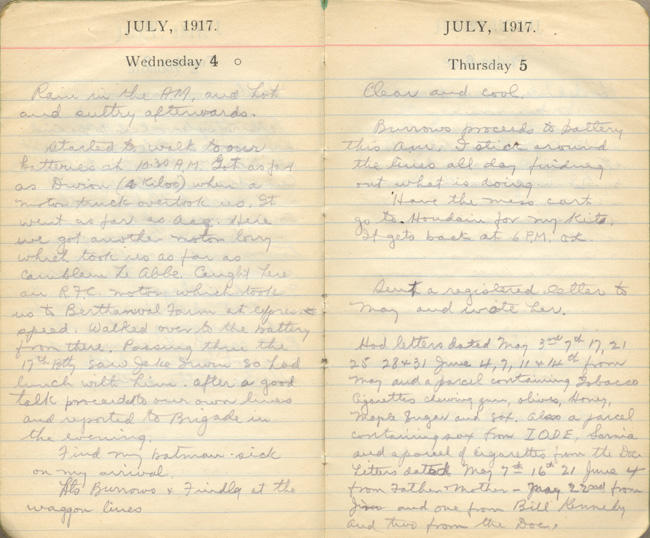 JULY, 1917.
Wednesday 4
Rain in the AM, and hot
and sultry afterwards.
Started to walk to our
batteries at 10:30 A.M. Got as far
as Divion (4 Kilos) when a
motor truck overtook us. It
went as far as Acq. Here
we got another motor lorry
which took us as far as
Camblain L'Abbe. Caught here
an R.F.C. motor which took
us to Berthonval Farm at express
speed. Walked over to the battery
from there. Passing thru the
17th Bty saw Jake Irwin so had
lunch with him. After a good
talk proceeded to our own lines
and reported to Brigade in
the evening.
Find my batman sick
on my arrival.
Lts Burrows & Findlay at the
waggon lines
JULY, 1917.
Thursday 5
Clear and cool.
Burrows proceeds to battery
this A.M. I stick around
the lines all day finding
out what is doing.
Have the mess cart
go to Houdain for my kits.
It gets back at 6 P.M. ok.
Sent a registered letter to
May and wrote her.
Had letters dated May 3rd 7th 17, 21
25 28 & 31 June 4, 7, 11 & 14th from
May and a parcel containing Tobacco
Cigarettes chewing gum, olives, Honey,
Maple Sugar and sox. Also a parcel
containing sox from I.O.D.E., Sarnia
and a parcel of cigarettes from the Doc
Letters dated May 7th 16th 21 June 4
from Father & Mother - May 22nd from
and one from Bill Kennedy
and two from the Doc.